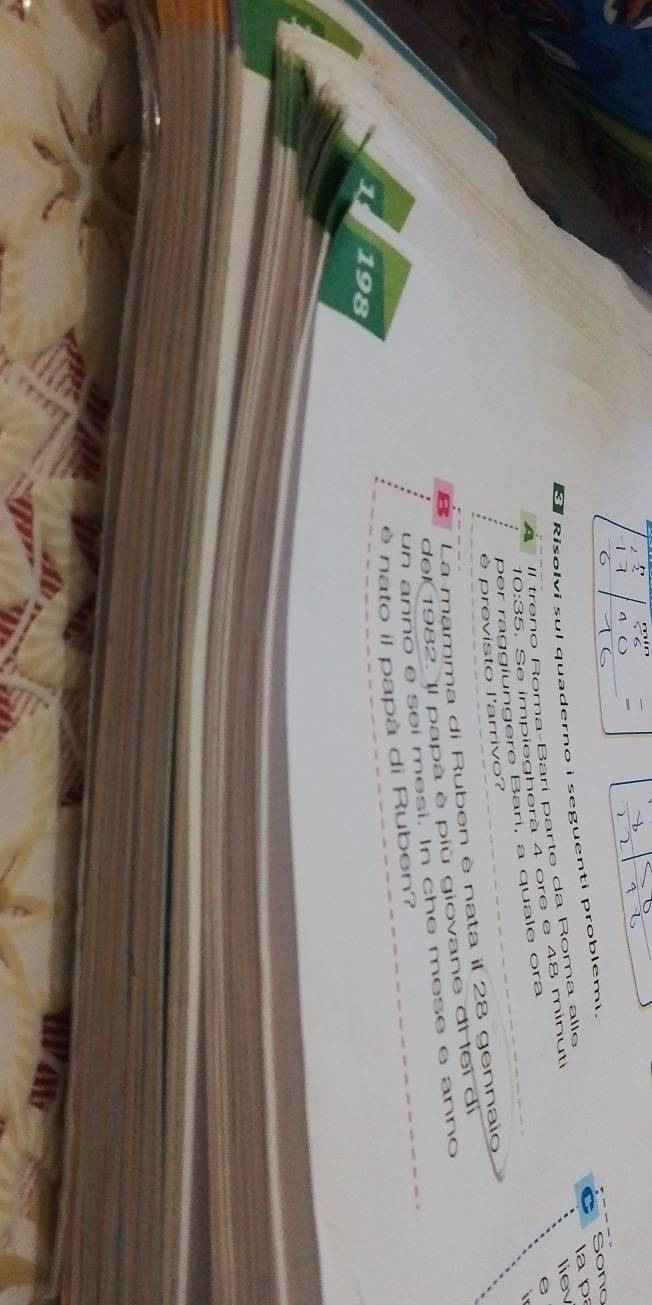 h min
3 Risolvi sul quaderno i seguenti problemi.
A Il treno Roma-Bari parte da Roma alle
10:35. Se impiegherà 4 ore e 48 minuti
per raggiungere Bari, a quale ora
è previsto l'arrivo?
B La mamma di Ruben è nata il 28 gennaio
del 1982. Il papà è più giovane di lei di
un anno e sei mesi. In che mese e anno
è nato il papà di Ruben?
C
198